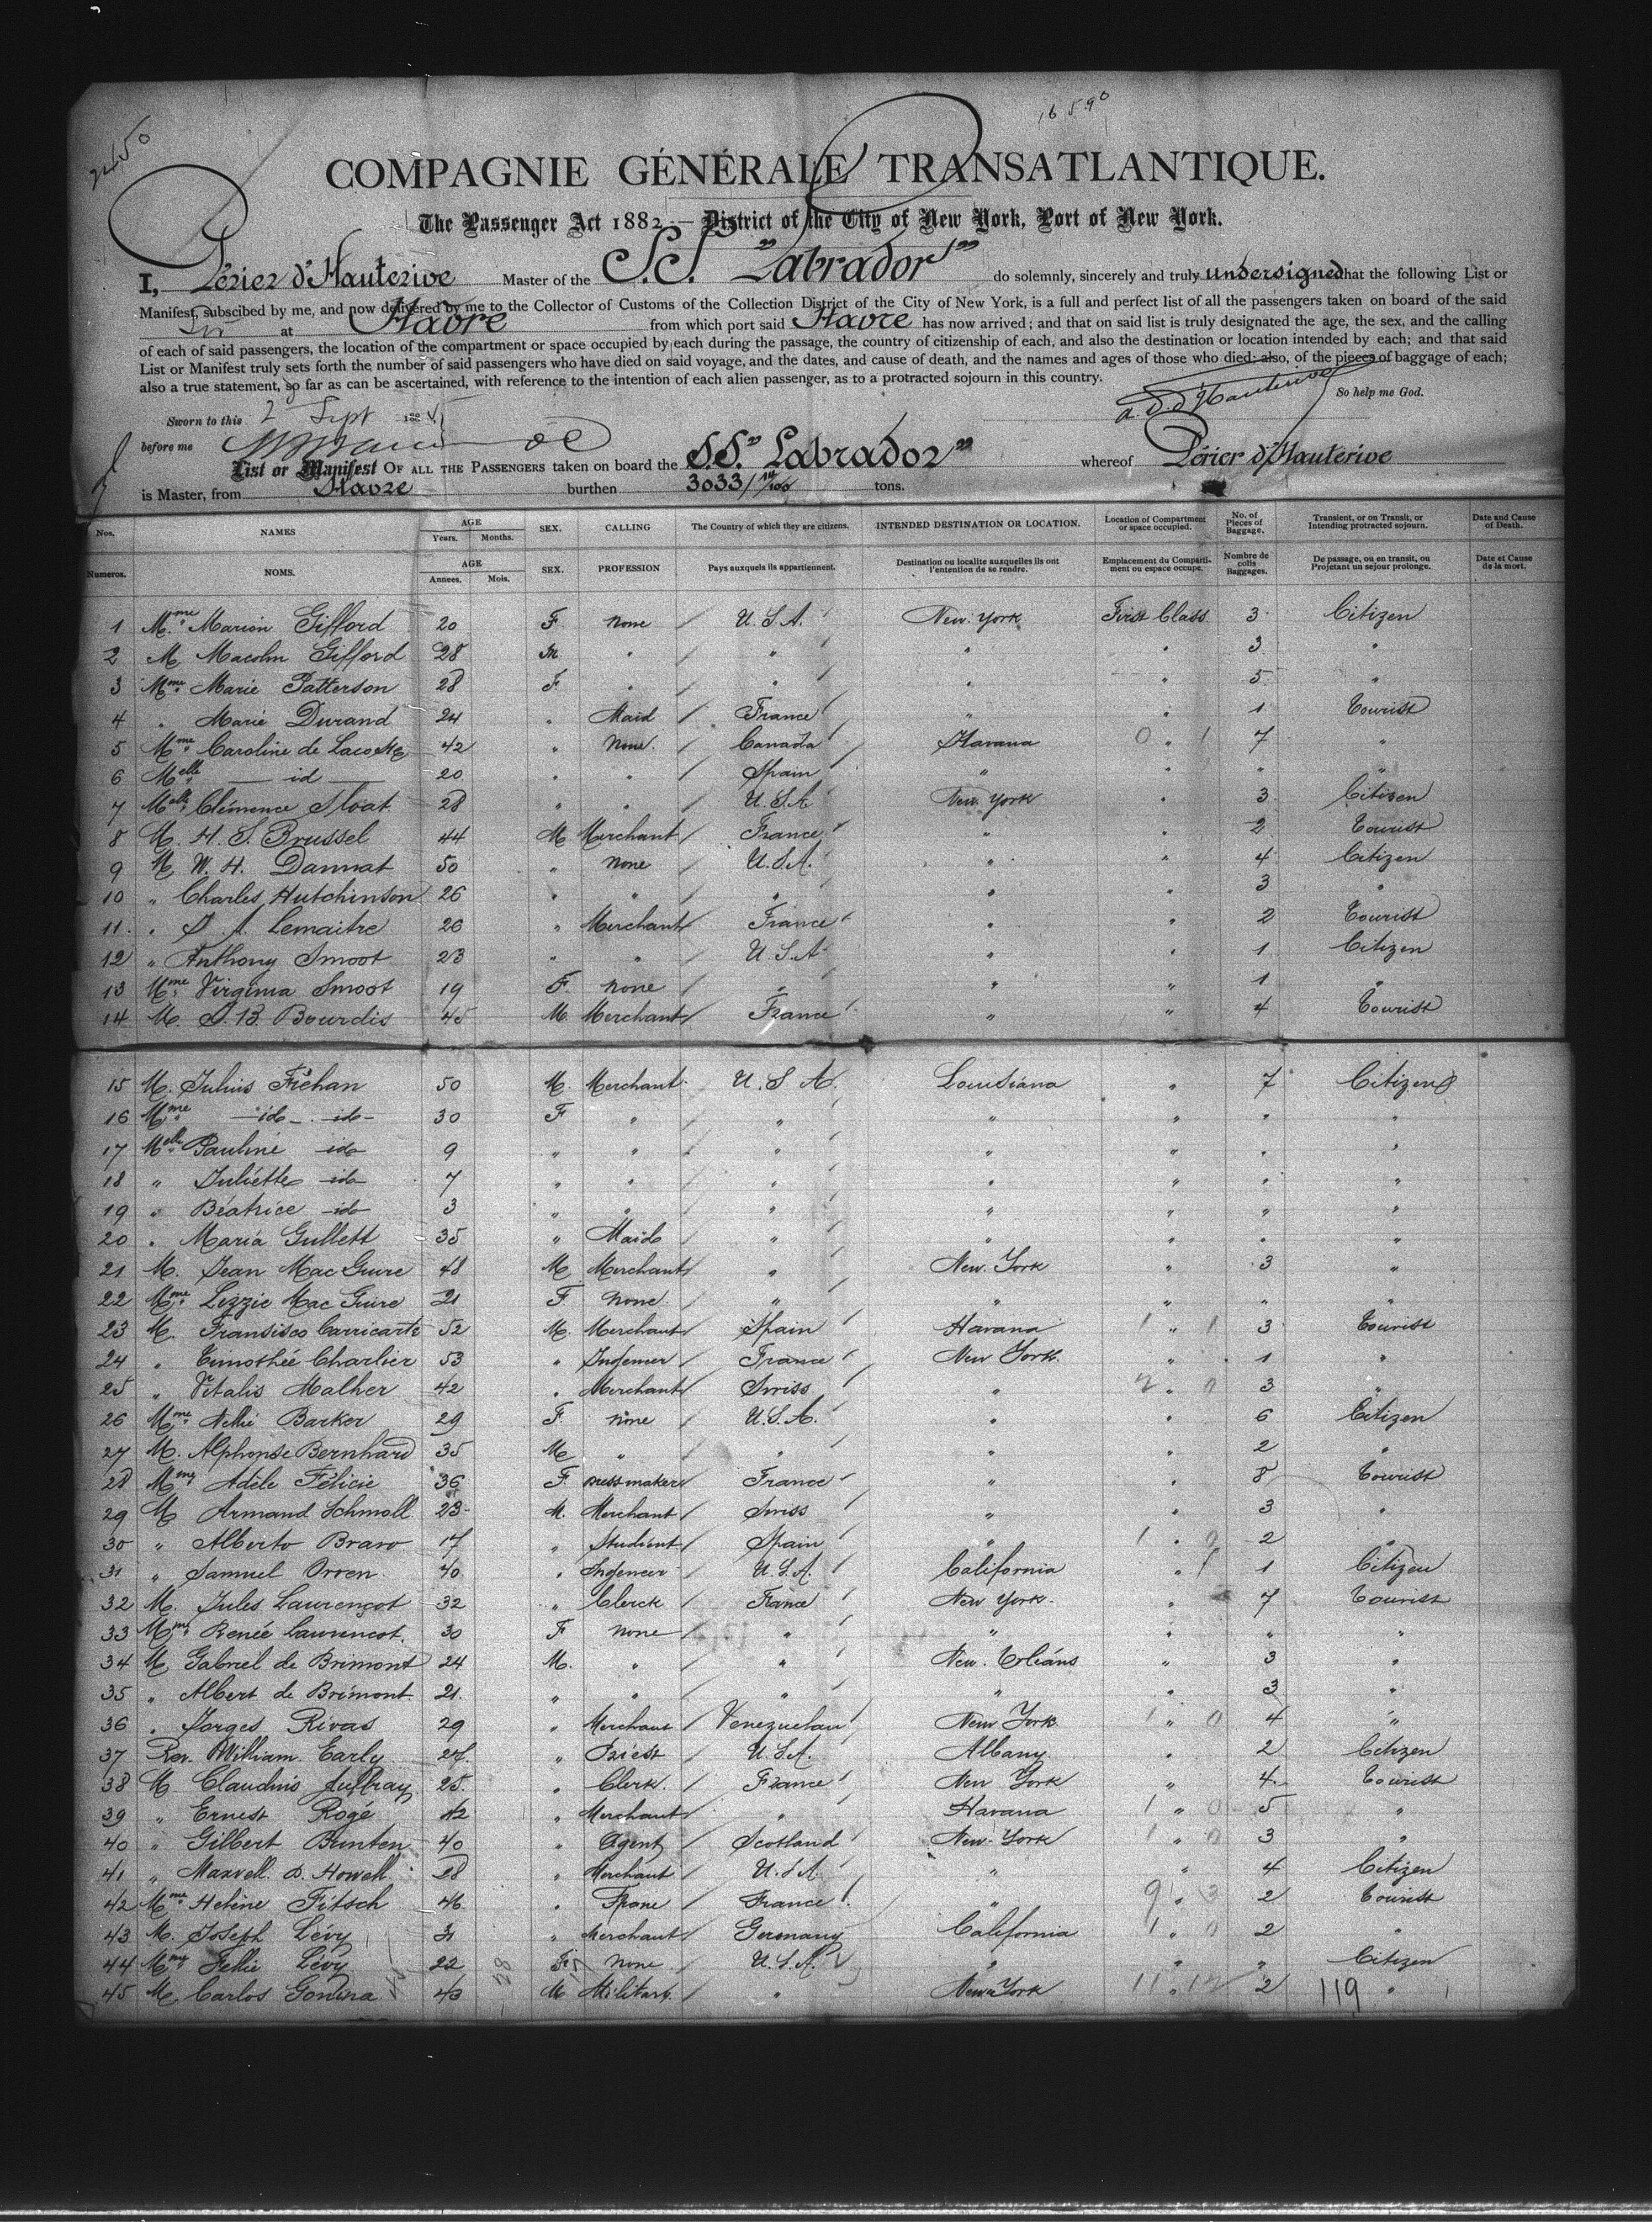 2450
16590
COMPAGNIE GÉNÉRALE TRANSATLANTIQUE.
The Passenger Act 1882 — District of the City of New York, Port of New York.
I, Périer d'Hauterive Master of the S.S. "Labrador" do solemnly, sincerely and truly undersigned that the following List or
Manifest, subscibed by me, and now delivered by me to the Collector of Customs of the Collection District of the City of New York, is a full and perfect list of all the passengers taken on board of the said
at Havre from which port said Havre has now arrived; and that on said list is truly designated the age, the sex, and the calling
of each of said passengers, the location of the compartment or space occupied by each during the passage, the country of citizenship of each, and also the destination or location intended by each; and that said
List or Manifest truly sets forth the number of said passengers who have died on said voyage, and the dates, and cause of death, and the names and ages of those who died; also, of the pieces of baggage of each;
also a true statement, so far as can be ascertained, with reference to the intention of each alien passenger, as to a protracted sojourn in this country.
a. P. d'Hauterive So help me God.
Sworn to this 2 Sept
before me
List or Manifest OF ALL THE PASSENGERS taken on board the S.S. "Labrador" whereof Périer d'Hauterive
is Master, from Havre burthen 3033 14/100 tons.
Nos. NAMES AGE Years. Months. SEX. CALLING The Country of which they are citizens. INTENDED DESTINATION OR LOCATION. Location of Compartment or space occupied. No. of Pieces of Baggage. Transient, or on Transit, or Intending protracted sojourn. Date and Cause of Death.
Numeros. NOMS. AGE Annees. Mois. SEX. PROFESSION Pays auxquels ils appartiennent. Destination ou localite auxquelles ils ont l'entention de se rendre. Emplacement du Compartiment ou espace occupe. Nombre de colis Baggages. De passage, ou en transit, ou Projetant un sejour prolonge. Date et Cause de la mort.
1 Mme Marion Gifford 20 F. None U.S.A. New York First Class 3 Citizen
2 M Macolm Gifford 28 M. " " " " 3 "
3 Mme Marie Patterson 28 F. " " " " 5 "
4 " Marie Durand 24 " Maid France " " 1 Tourist
5 Mme Caroline de Lacoste 42 " None. Canada Havana 0 " 1 7 "
6 Melle — id — 20 " " Spain " " " "
7 Melle Clémence Sloat 28 " " U.S.A New York " 3 Citizen
8 M. H. S. Brussel 44 M Merchant France " " 2 Tourist
9 M W. H. Dannat 50 " None U.S.A. " " 4 Citizen
10 " Charles Hutchinson 26 " " " " " 3 "
11 " Lemaitre 26 " Merchant France " " 2 Tourist
12 " Anthony Smoot 23 " " U.S.A " " 1 Citizen
13 Mme Virginia Smoot 19 F. None " " " 1 "
14 M. J. B. Bourdis 45 M. Merchant France " " 4 Tourist
15 M. Julius Fréhan 50 M. Merchant U.S.A. Louisiana " 7 Citizen
16 Mme — id — id — 30 F " " " " " "
17 Melle Pauline — id 9 " " " " " " "
18 " Juliette — id 7 " " " " " " "
19 " Béatrice — id 3 " " " " " " "
20 " Maria Gullett 35 " Maid " " " " "
21 M. Jean Mac Guire 48 M Merchant " New York " 3 "
22 Mme Lizzie Mac Guire 21 F None " " " " "
23 M. Fransisco Carricarte 52 M. Merchant Spain Havana 1 " 1 3 Tourist
24 " Timothée Charlier 53 " Ingener France New York " 1 "
25 " Vitalis Malher 42 " Merchant Swiss " 2 " 0 3 "
26 Mme Nellie Barker 29 F. None U.S.A. " " 6 Citizen
27 M. Alphonse Bernhard 35 M " " " " 2 "
28 Mme Adèle Félicie 36 F. Dressmaker France " " 8 Tourist
29 M Armand Schmoll 23 M. Merchant Swiss " " 3 "
30 " Alberto Bravo 17 " Student Spain " 1 " 0 2 "
31 " Samuel Orren 40 " Ingeneer U.S.A. California " 1 Citizen
32 M. Jules Laurençot 32 " Clerck France New York " 7 Tourist
33 Mme Renée Laurencot. 30 F None " " " " "
34 M. Gabriel de Brimont 24 M. " " New. Orléans " 3 "
35 " Albert de Brimont 21. " " " " " 3 "
36 " Jorges Rivas 29 " Merchant Venezuelan New York 1 " 0 4 "
37 Rev. William Early 27. " Priest U.S.A. Albany " 2 Citizen
38 M Claudius Juffray 25. " Clerk. France New York " 4 Tourist
39 " Ernest Rogé 42 " Merchant " Havana 1 " 0 5 "
40 " Gilbert Bunten 40 " Agent Scotland New York 1 " 0 3 "
41 " Maxvell. D. Howell 28 " Merchant U.S.A. " " 4 Citizen
42 Mme Helène Fitsch 46 " None France " 9 " 3 2 Tourist
43 M. Joseph Lévy 31 " Merchant Germany California 1 " 0 2 "
44 Mme Lévy 22 F None U.S.A. " " " Citizen
45 M. Carlos Gonina 43 M Military. " New York 11 " 12 2 119 "